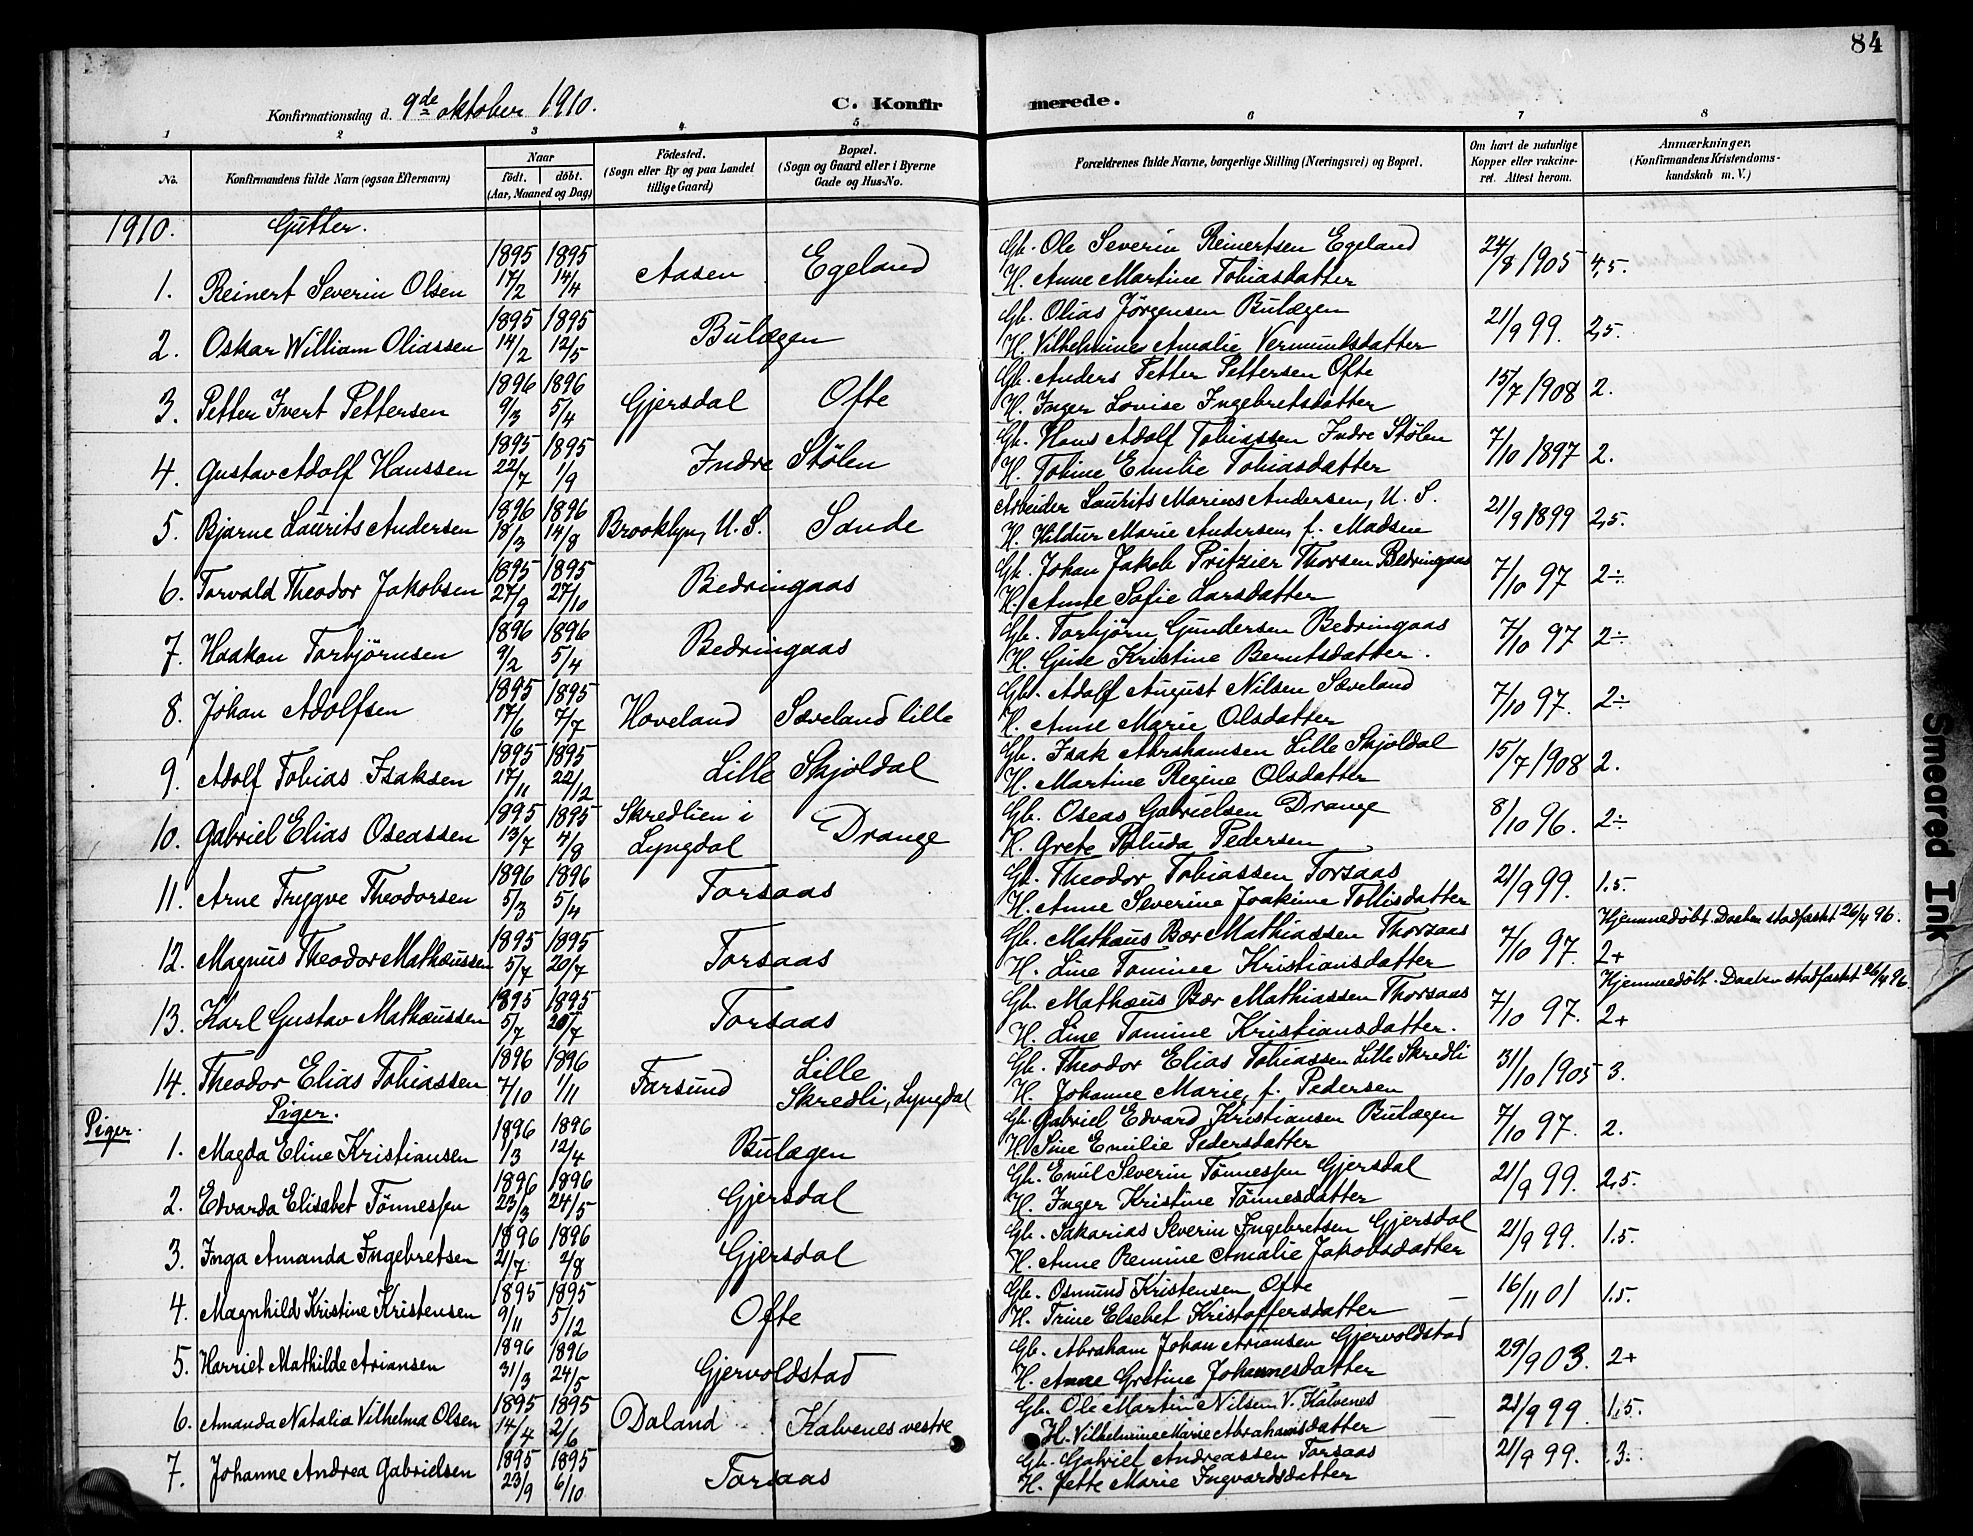 84
Konfirmationsdag d. 9de oktober 1910. C. Konfirmerede.
1 2 3 4 5 6 7 8
No. Konfirmandens fulde Navn (ogsaa Efternavn) Naar födt. döbt. (Aar, Maaned og Dag) Födested. (Sogn eller By og paa Landet tillige Gaard) Bopæl. (Sogn og Gaard eller i Byerne Gade og Hus-No. Forældrenes fulde Navne, borgerlige Stilling (Næringsvei) og Bopæl. Om havt de naturlige Kopper eller vakcineret. Attest herom. Anmærkninger. (Konfirmandens Kristendomskundskab m. V.)
1910. Gutter.
1. Reinert Severin Olsen 1895 17/2 1895 14/4 Aasen Egeland Gb. Ole Severin Reinertsen Egeland
H. Anne Martine Tobiasdatter 24/8 1905 4,5.
2. Oskar William Oliassen 1895 14/2 1895 12/5 Bulægen Gb. Olias Jørgensen Bulægen
H. Vilhelmine Amalie Vermundsdatter 21/9 99. 2,5.
3. Petter Ivert Pettersen 1896 9/3 1896 5/4 Gjersdal Ofte Gb. Anders Petter Pettersen Ofte
H. Inger Lovise Ingebretsdatter 15/7 1908 2.
4. Gustav Adolf Hanssen 1895 22/7 1895 1/9 Indre Stølen Gb. Hans Adolf Tobiassen Indre Stølen
H. Tobine Emilie Tobiasdatter 7/10 1897 2.
5. Bjarne Laurits Andersen 1896 18/3 1896 14/8 Brooklyn, U.S. Sande Arbeider Laurits Marius Andersen, U.S.
H. Hildur Marie Andersen, f. Madsen 21/9 1899 2,5.
6. Torvald Theodor Jakobsen 1895 27/9 1895 27/10 Bedringaas Gb. Johan Jakob Pritzier Thorsen Bedringaas
H. Anne Sofie Larsdatter 7/10 97 2÷
7. Haakon Torbjörnsen 1896 9/2 1896 5/4 Bedringaas Gb. Torbjörn Gundersen Bedringaas
H. Gine Kristine Berntsdatter. 7/10 97 2÷
8. Johan Adolfsen 1895 17/6 1895 7/7 Hoveland Sæveland lille Gb. Adolf August Nilsen Sæveland
H. Anne Marie Olsdatter 7/10 97. 2÷
9. Adolf Tobias Isaksen 1895 17/11 1895 22/12 Lille Skjoldal Gb. Isak Abrahamsen Lille Skjoldal
H. Martine Regine Olsdatter 15/7 1908 2.
10. Gabriel Elias Oseassen 1895 13/7 1895 4/8 Skredlien i Lyngdal Drange Gb. Oseas Gabrielsen Drange
H. Grete Pedersen 8/10 96. 2÷
11. Arne Trygve Theodorsen 1896 5/3 1896 5/4 Torsaas Gb. Theodor Tobiassen Torsaas
H. Anne Severine Joakime Tollisdatter 21/9 99. 1.5.
12. Magnus Theodor Mathæussen 1895 5/7 1895 20/7 Torsaas Gb. Mathæus Bær Mathiassen Thorsaas
H. Line Tomine Kristiansdatter 7/10 97. Hjemmedöbt. Daaben stadfæstet 26/4 96.
2+
13. Karl Gustav Mathæussen 1895 5/7 1895 20/7 Torsaas Gb. Mathæus Bær Mathiassen Thorsaas
H. Line Tomine Kristiansdatter. 7/10 97. Hjemmedöbt. Daaben stadfæstet 26/4 96.
2+
14. Theodor Elias Tobiassen 1896 7/10 1896 1/11 Farsund Lille Skredli, Lyngdal Gb. Theodor Elias Tobiassen Lille Skredli
H. Johanne Marie, f. Pedersen 31/10 1905 3.
Piger. Piger.
1. Magda Eline Kristiansen 1896 1/3 1896 12/4 Bulægen Gb. Gabriel Edvard Kristiansen Bulægen
H. Sine Emilie Pedersdatter 7/10 97. 2.
2. Edvarda Elisabet Tönnessen 1896 23/3 1896 24/5 Gjersdal Gb. Emil Severin Tönnessen Gjersdal
H. Inger Kristine Tönnesdatter 21/9 99. 2,5.
3. Inga Amanda Ingebretsen 1896 21/7 1896 2/8 Gjersdal Gb. Sakarias Severin Ingebretsen Gjersdal
H. Anne Remine Amalie Jakobsdatter 21/9 99. 1.5.
4. Magnhild Kristine Kristensen 1895 9/11 1895 5/12 Ofte Gb. Osmund Kristensen Ofte
H. Trine Elsebet Kristoffersdatter 16/11 01 1.5.
5. Harriet Mathilde Ariansen 1896 31/3 1896 24/5 Gjervoldstad Gb. Abraham Johan Ariansen Gjervoldstad
H. Anne Gretine Johannesdatter 29/9 03. 2+
6. Amanda Natalia Vilhelma Olsen 1895 14/4 1895 2/6 Daland Kalvenes vestre Gb. Ole Martin Nilsen V. Kalvenes
H. Vilhelmine Marie Abrahamsdatter 21/9 99. 1.5.
7. Johanne Andrea Gabrielsen 1895 23/9 1895 6/10 Torsaas Gb. Gabriel Andreassen Torsaas
H. Jette Marie Ingvardsdatter 21/9 99. 3.
Smeared Ink